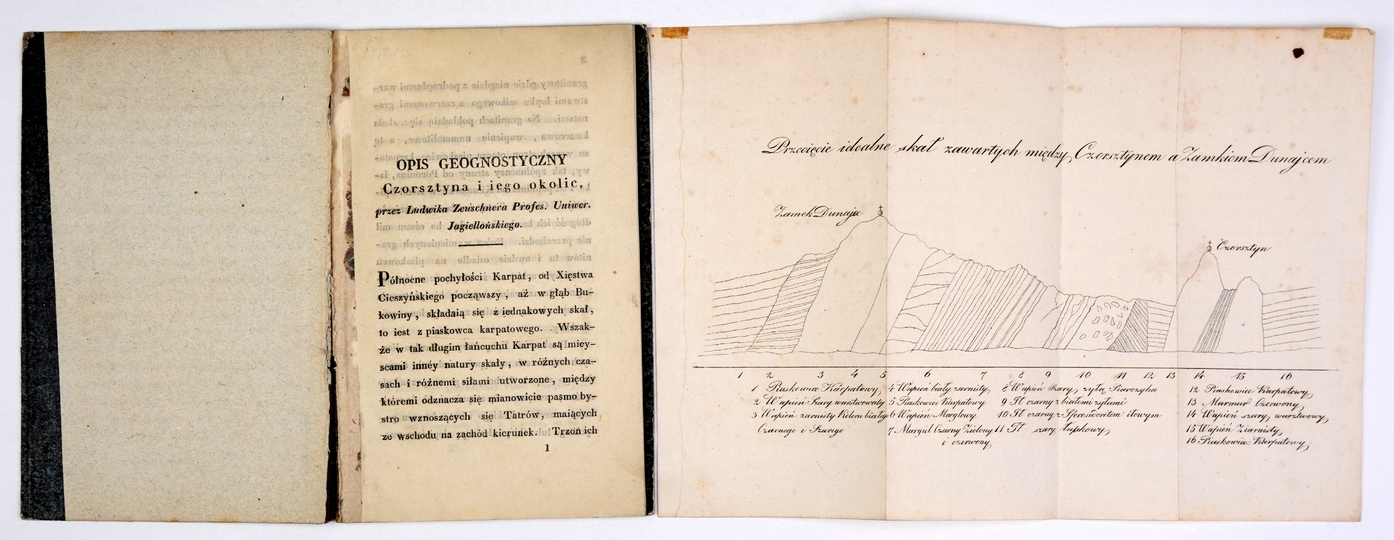 2
OPIS GEOGNOSTYCZNY
Czorsztyna i iego okolic,
przez Ludwika Zeuschnera Profes. Uniwer.
Jagiellońskiego.
Północne pochyłości Karpat, od Xięstwa
Cieszyńskiego począwszy, aż w głąb Bu-
kowiny, składaią się z iednakowych skał,
to iest z piaskowca karpatowego. Wszak-
że w tak długim łańcuchu Karpat są miey-
scami innéy natury skały, w różnych cza-
sach i różnemi siłami utworzone, między
któremi odznacza się mianowicie pasmo by-
stro wznoszących się Tatrów, maiących
ze wschodu na zachód kierunek. Trzon ich
1
Przecięcie idealne skał zawartych między Czorsztynem a Zamkiem Dunajcem
Zamek Dunajec
Czorsztyn
1 2 3 4 5 6 7 8 9 10 11 12 13 14 15 16
1 Piaskowiec Karpatowy,
2 Wapień Szary warstwowaty
3 Wapień ziarnisty Koloru białego
Czarnego i Szarego
4 Wapień biały ziarnisty,
5 Piaskowiec Karpatowy
6 Wapień Marglowy
7 Margiel Czarny Zielony
i czerwony,
8 Wapień Szary, z żyłą Piarczyku
9 Tł czarny z białemi żyłami
10 Tł czarny z Sferosideritem ilowym
11 Tł szary łupkowy,
12 Piaskowiec Karpatowy,
13 Marmur Czerwony,
14 Wapień szary, warstwowy,
15 Wapień Ziarnisty,
16 Piaskowiec Karpatowy,